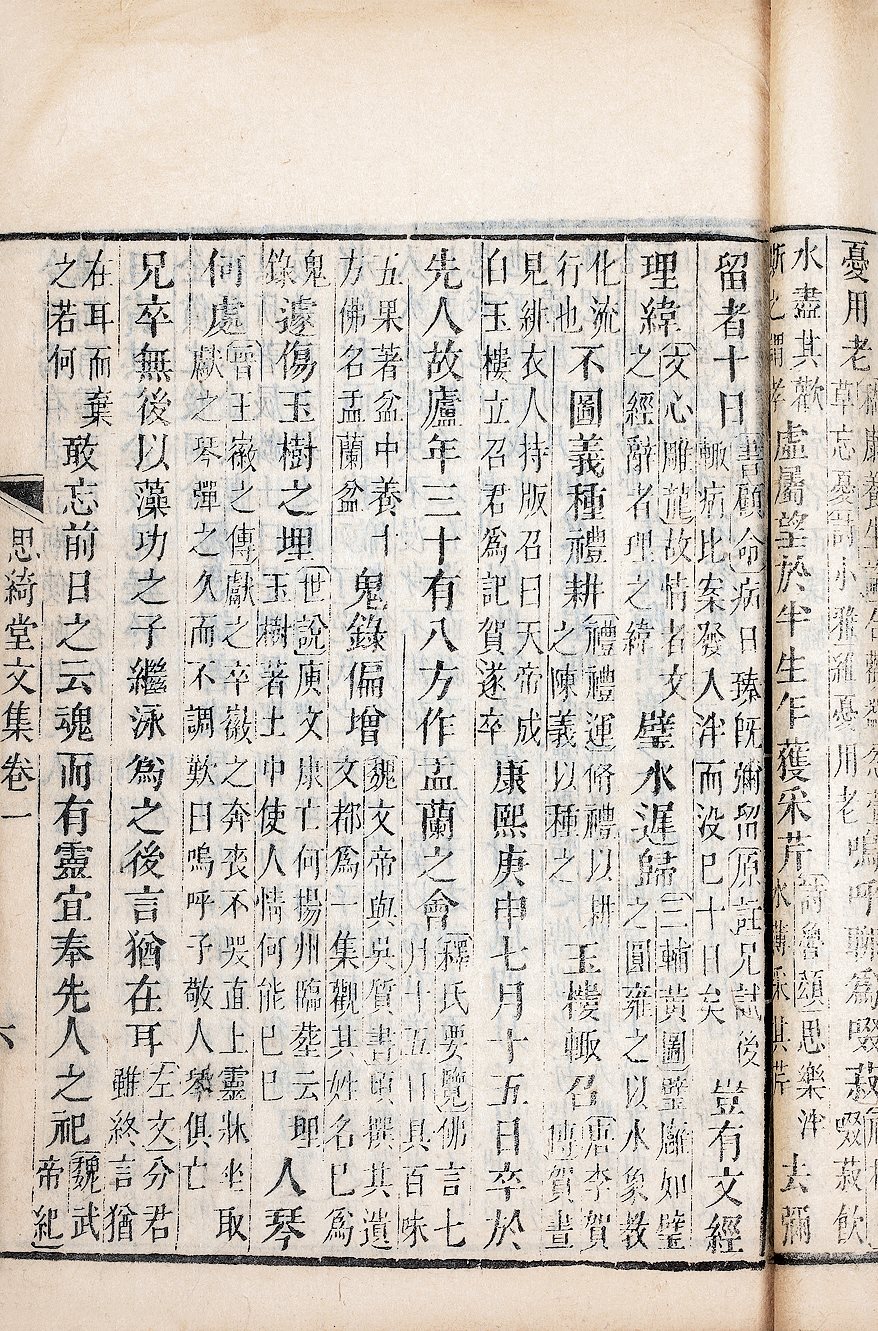 憂用老草忘憂詩小雅維憂用老嗚呼聊爲啜菽啜菽飲
水盡其歡斯之謂孝虛屬望於半生乍獲采芹詩魯頌思樂泮水薄采其芹去彌
留者十日書顧命病日臻旣彌留原註兄試後輙病比案發入泮而没巳十日矣豈有文經
理緯文心雕龍故情者文之經辭者理之緯璧水遲歸三輔黃圖璧廱如璧之圓雍之以水象教
化流行也不圖義種禮耕禮禮運脩禮以耕之陳義以種之玉樓輙召唐李賀傳賀晝
見緋衣人持版召曰天帝成白玉樓立召君爲記賀遂卒康熙庚申七月十五日卒於
先人故廬年三十有八方作盂蘭之會釋氏要覽佛言七月十五日具百味
五果著盆中養十方佛名盂蘭盆鬼錄偏增魏文帝與吳質書頃撰其遺文都爲一集觀其姓名巳爲
鬼錄遽傷玉樹之埋世說庾文康亡何揚州臨塟云埋玉樹著土中使人情何能巳巳人琴
何處晉王徽之傳獻之卒徽之奔喪不哭直上靈牀坐取獻之琴彈之久而不調歎曰嗚呼子敬人琴俱亡
兄卒無後以藻功之子繼泳爲之後言猶在耳左文分君雖終言猶
在耳而棄之若何敢忘前日之云魂而有靈宜奉先人之祀魏武帝紀
思綺堂文集卷一
六